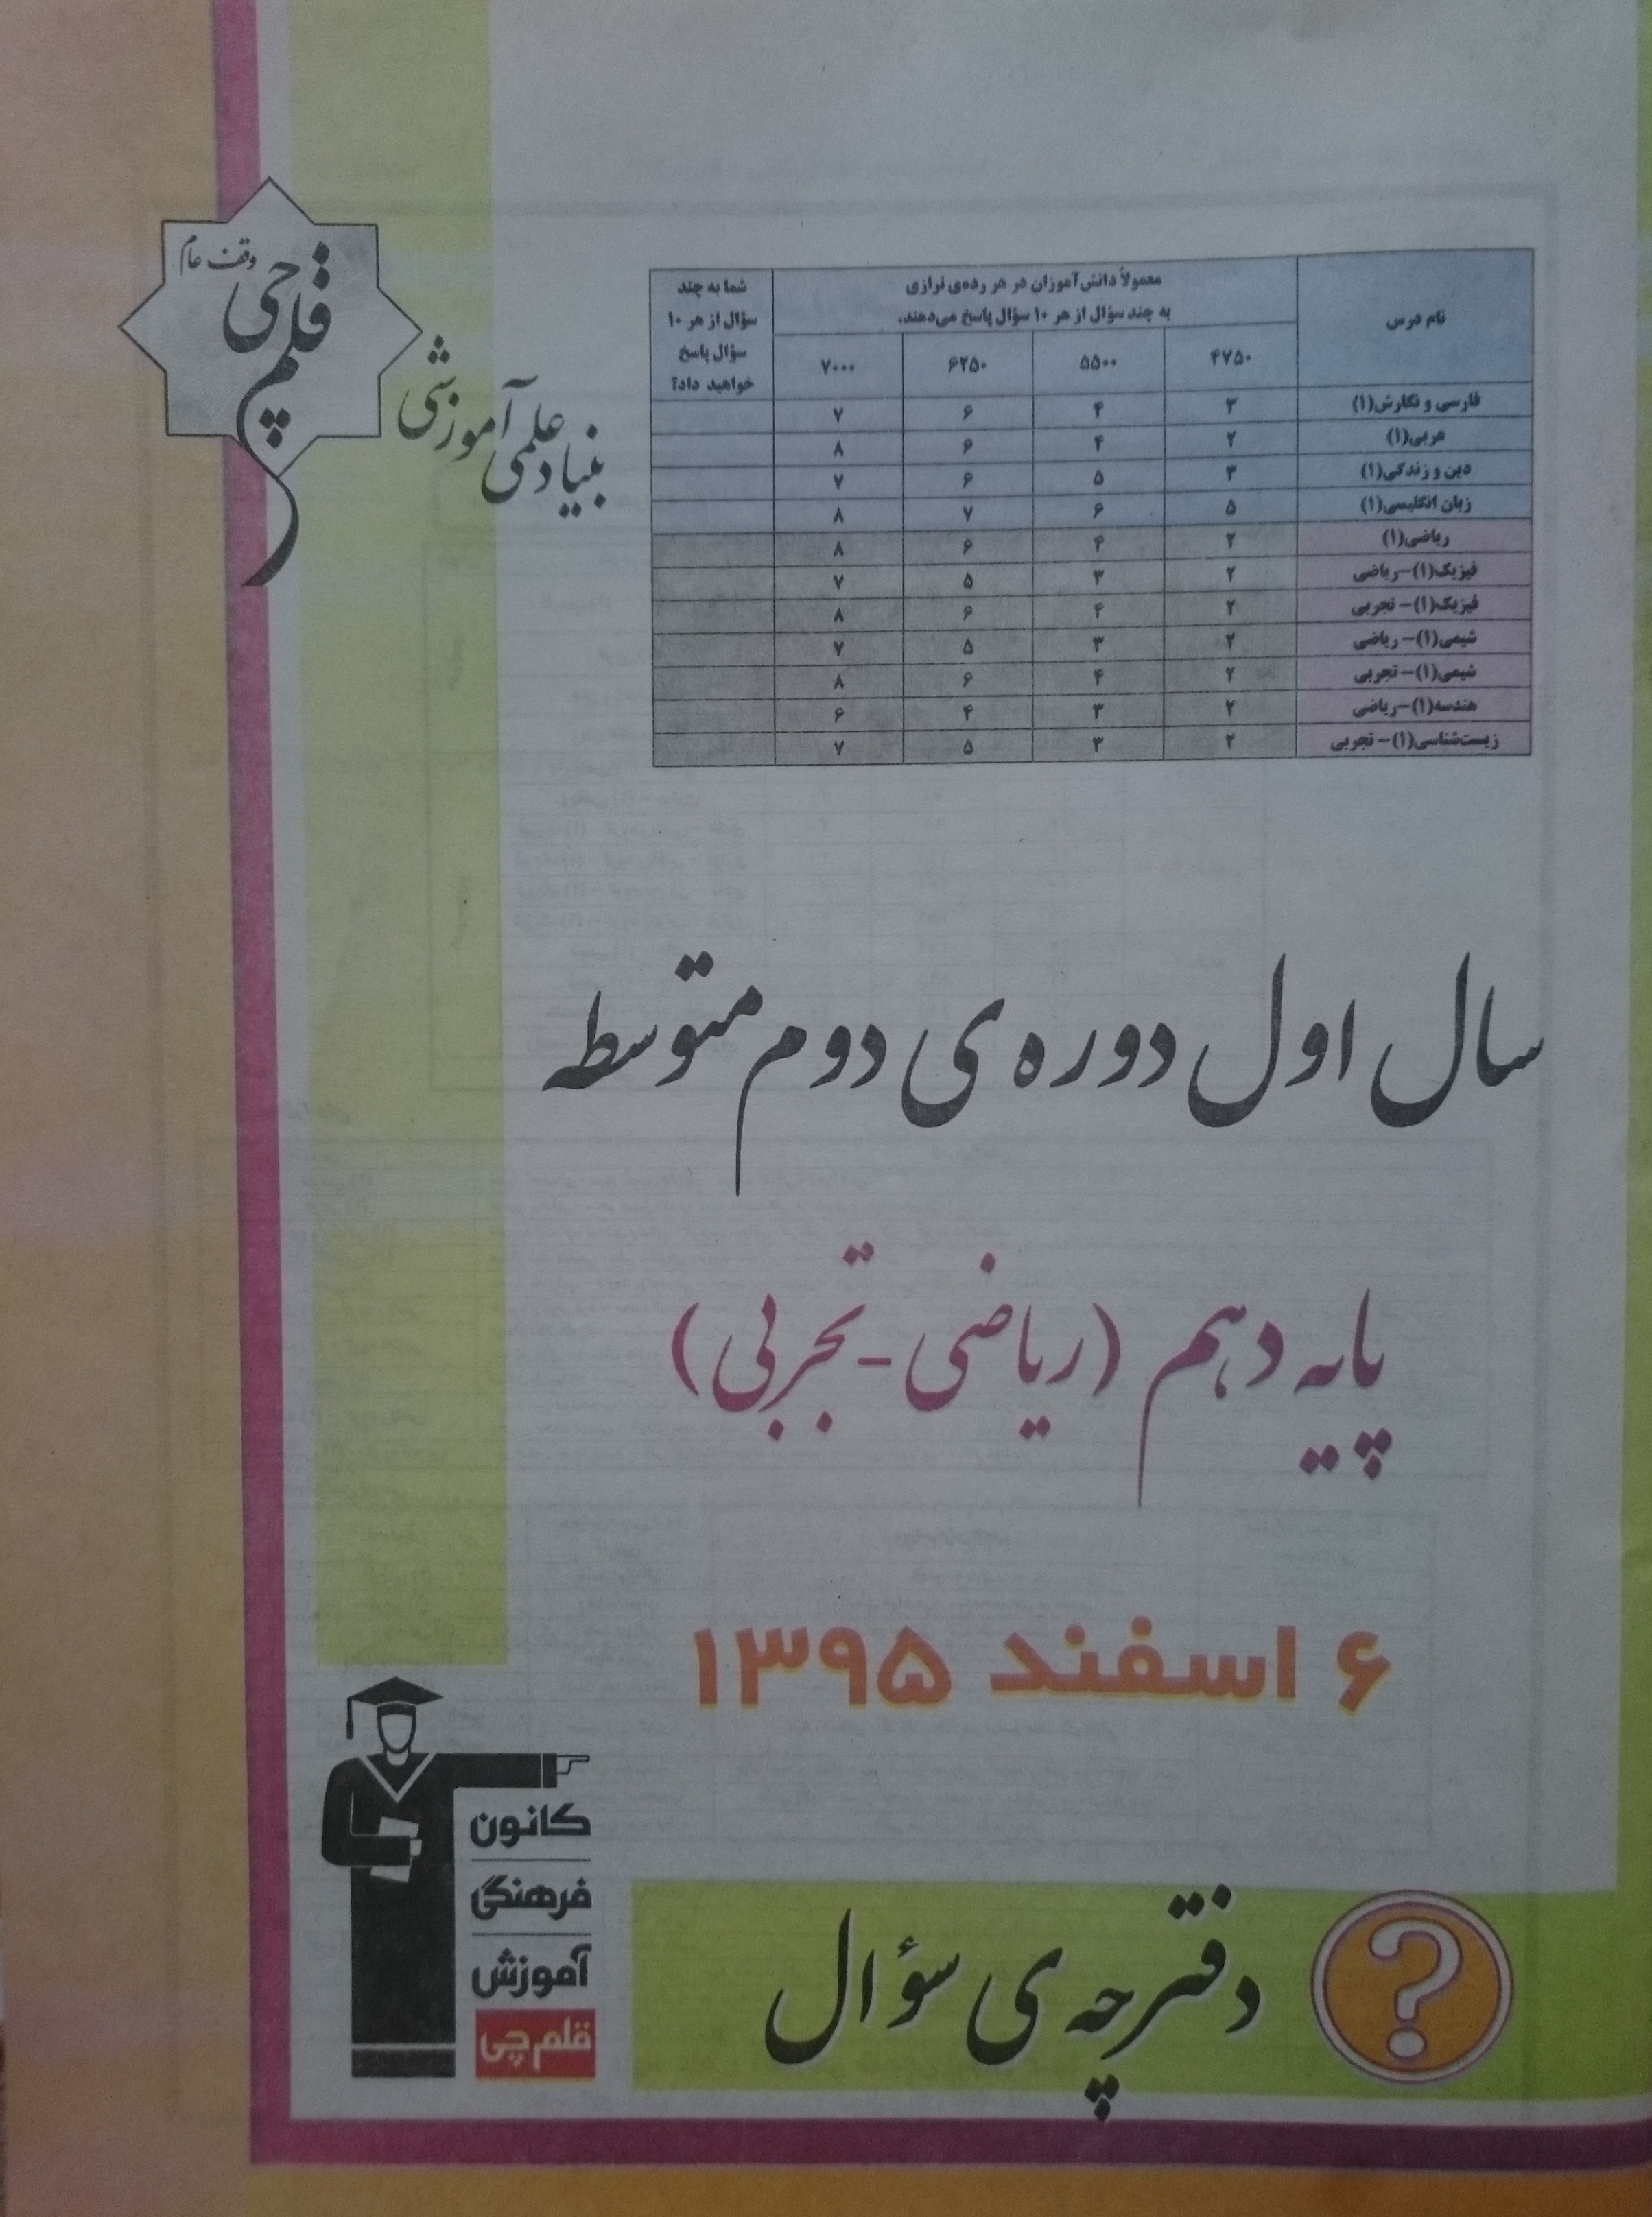 وقف عام
قلم چی
بنیاد علمی آموزشی
نام درس
معمولاً دانش‌آموزان در هر رده‌ی ترازی
به چند سؤال از هر ۱۰ سؤال پاسخ می‌دهند.
شما به چند
سؤال از هر ۱۰
سؤال پاسخ
خواهید داد؟
۴۷۵۰ ۵۵۰۰ ۶۲۵۰ ۷۰۰۰
فارسی و نگارش(۱) ۳ ۴ ۶ ۷
عربی(۱) ۲ ۴ ۶ ۸
دین و زندگی(۱) ۳ ۵ ۶ ۷
زبان انگلیسی(۱) ۵ ۶ ۷ ۸
ریاضی(۱) ۲ ۴ ۶ ۸
فیزیک(۱)-ریاضی ۲ ۳ ۵ ۷
فیزیک(۱)- تجربی ۲ ۴ ۶ ۸
شیمی(۱)- ریاضی ۲ ۳ ۵ ۷
شیمی(۱)- تجربی ۲ ۴ ۶ ۸
هندسه(۱)-ریاضی ۲ ۳ ۴ ۶
زیست‌شناسی(۱)- تجربی ۲ ۳ ۵ ۷
سال اول دوره ی دوم متوسطه
پایه دهم (ریاضی - تجربی)
۶ اسفند ۱۳۹۵
کانون
فرهنگی
آموزش
قلم‌چی
؟
دفترچه ی سؤال